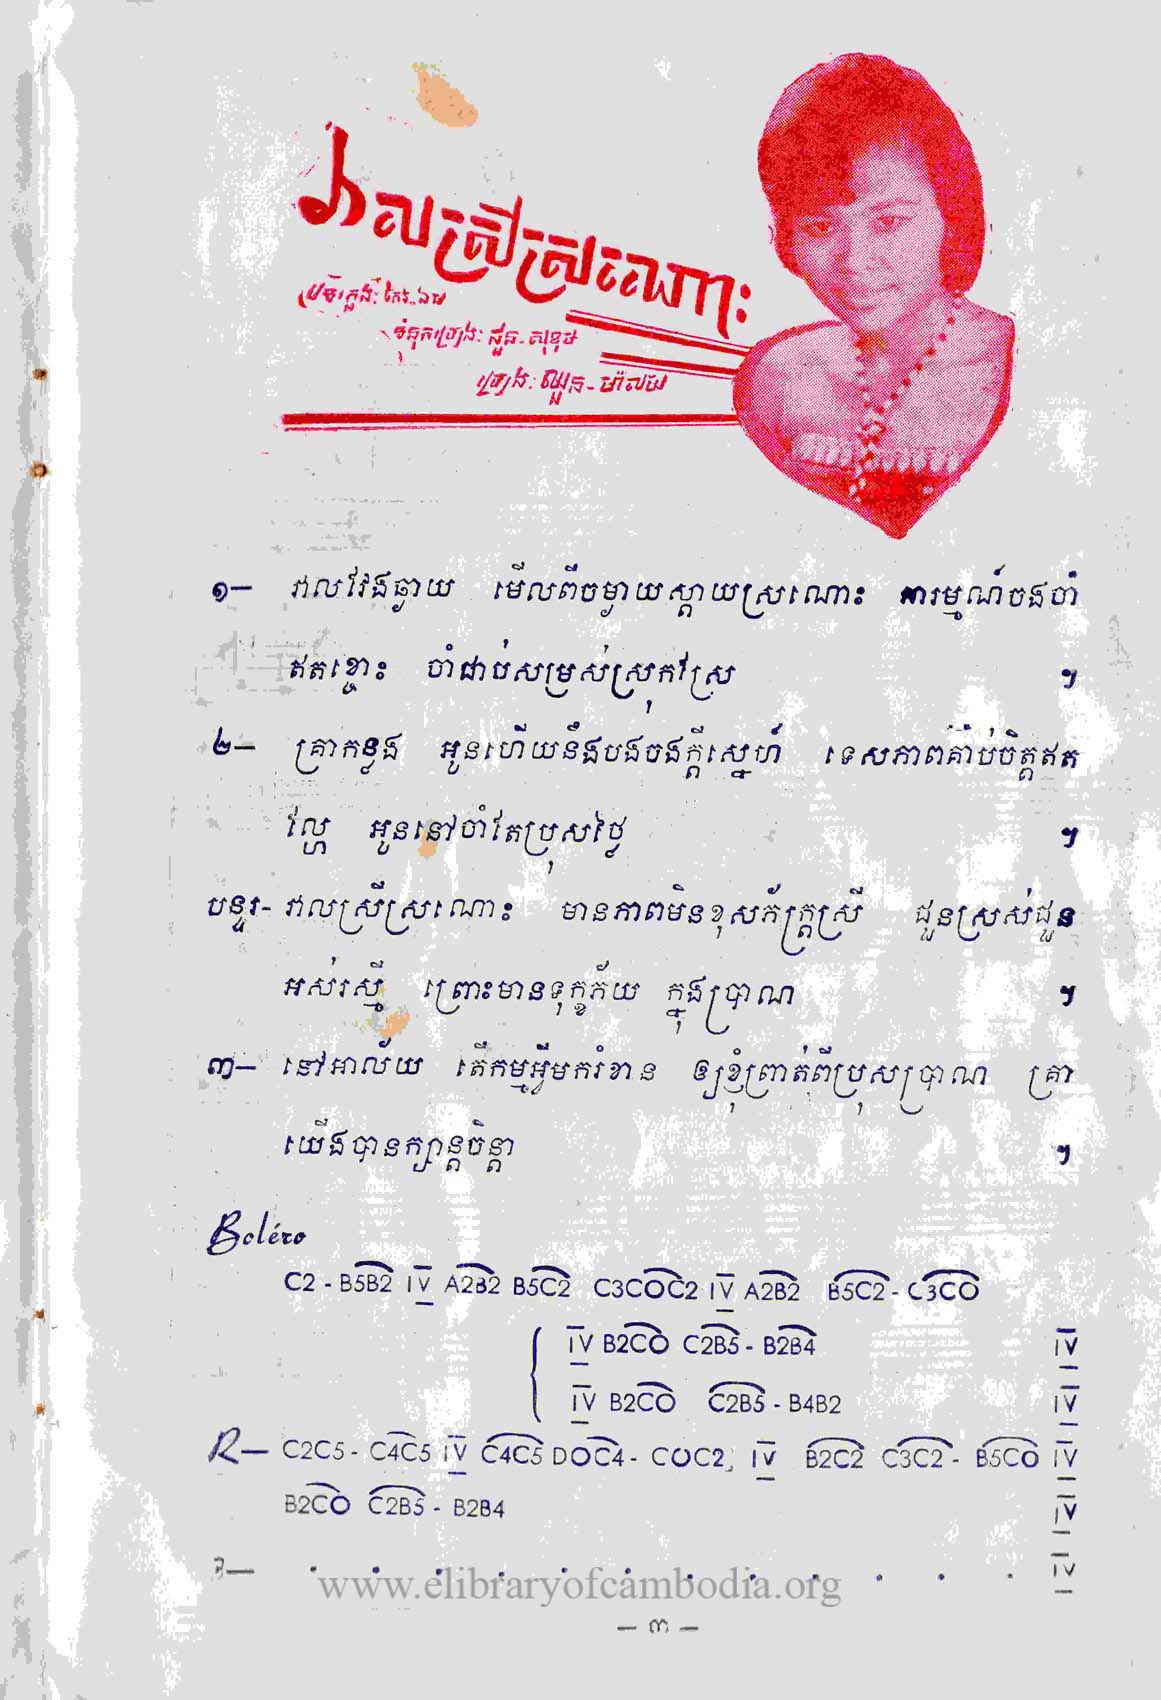 វាលស្រីស្រណោះ
បទភ្លេង:
ទំនុកច្រៀង: ជួន-សុខុម
ច្រៀង: ឈួន-ម៉ាលៃ
១— វាលវែងឆ្ងាយ មើលពីចម្ងាយស្តាយស្រណោះ អារម្មណ៍ចងចាំ
ឥតខ្ចោះ ចាំជាប់សម្រស់ស្រុកស្រែ ៗ
២— គ្រាកន្លង អូនហើយនឹងបងចងក្តីស្នេហ៍ ទេសភាពគាប់ចិត្តឥត
ល្ហែ អូននៅចាំតែប្រុសថ្លៃ ៗ
បន្ទរ- វាលស្រីស្រណោះ មានភាពមិនខុសភ័ក្ត្រស្រី ជួនស្រស់ជួន
អស់រស្មី ព្រោះមានទុក្ខភ័យ ក្នុងប្រាណ ៗ
៣— នៅអាល័យ តើកម្មអ្វីមករំខាន ឲ្យខ្ញុំព្រាត់ពីប្រុសប្រាណ គ្រា
យើងបានក្សាន្តចិន្តា ៗ
Boléro
C2 - B5B2 IV A2B2 B5C2 C3COC2 IV A2B2 B5C2 - C3CO
IV B2CO C2B5 - B2B4 IV
IV B2CO C2B5 - B4B2 IV
R— C2C5 - C4C5 IV C4C5 DOC4 - COC2, IV B2C2 C3C2 - B5CO IV
B2CO C2B5 - B2B4 IV
3— . . . . . . . . . . . . IV
www.elibraryofcambodia.org
— ៣ —